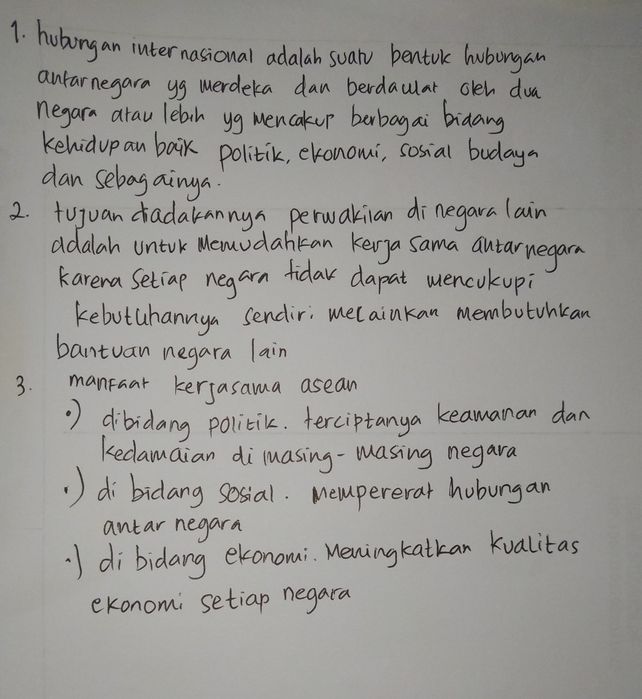 1. hubungan internasional adalah suatu bentuk hubungan
antarnegara yg merdeka dan berdaulat oleh dua
negara atau lebih yg mencakup berbagai bidang
kehidupan baik politik, ekonomi, sosial budaya
dan sebagainya.
2. tujuan diadakannya perwakilan di negara lain
adalah untuk memudahkan kerja sama antarnegara
karena setiap negara tidak dapat mencukupi
kebutuhannya sendiri melainkan membutuhkan
bantuan negara lain
3. manfaat kerjasama asean
•) dibidang politik. terciptanya keamanan dan
kedamaian di masing-masing negara
•) di bidang sosial. mempererat hubungan
antar negara
•) di bidang ekonomi. Meningkatkan kualitas
ekonomi setiap negara